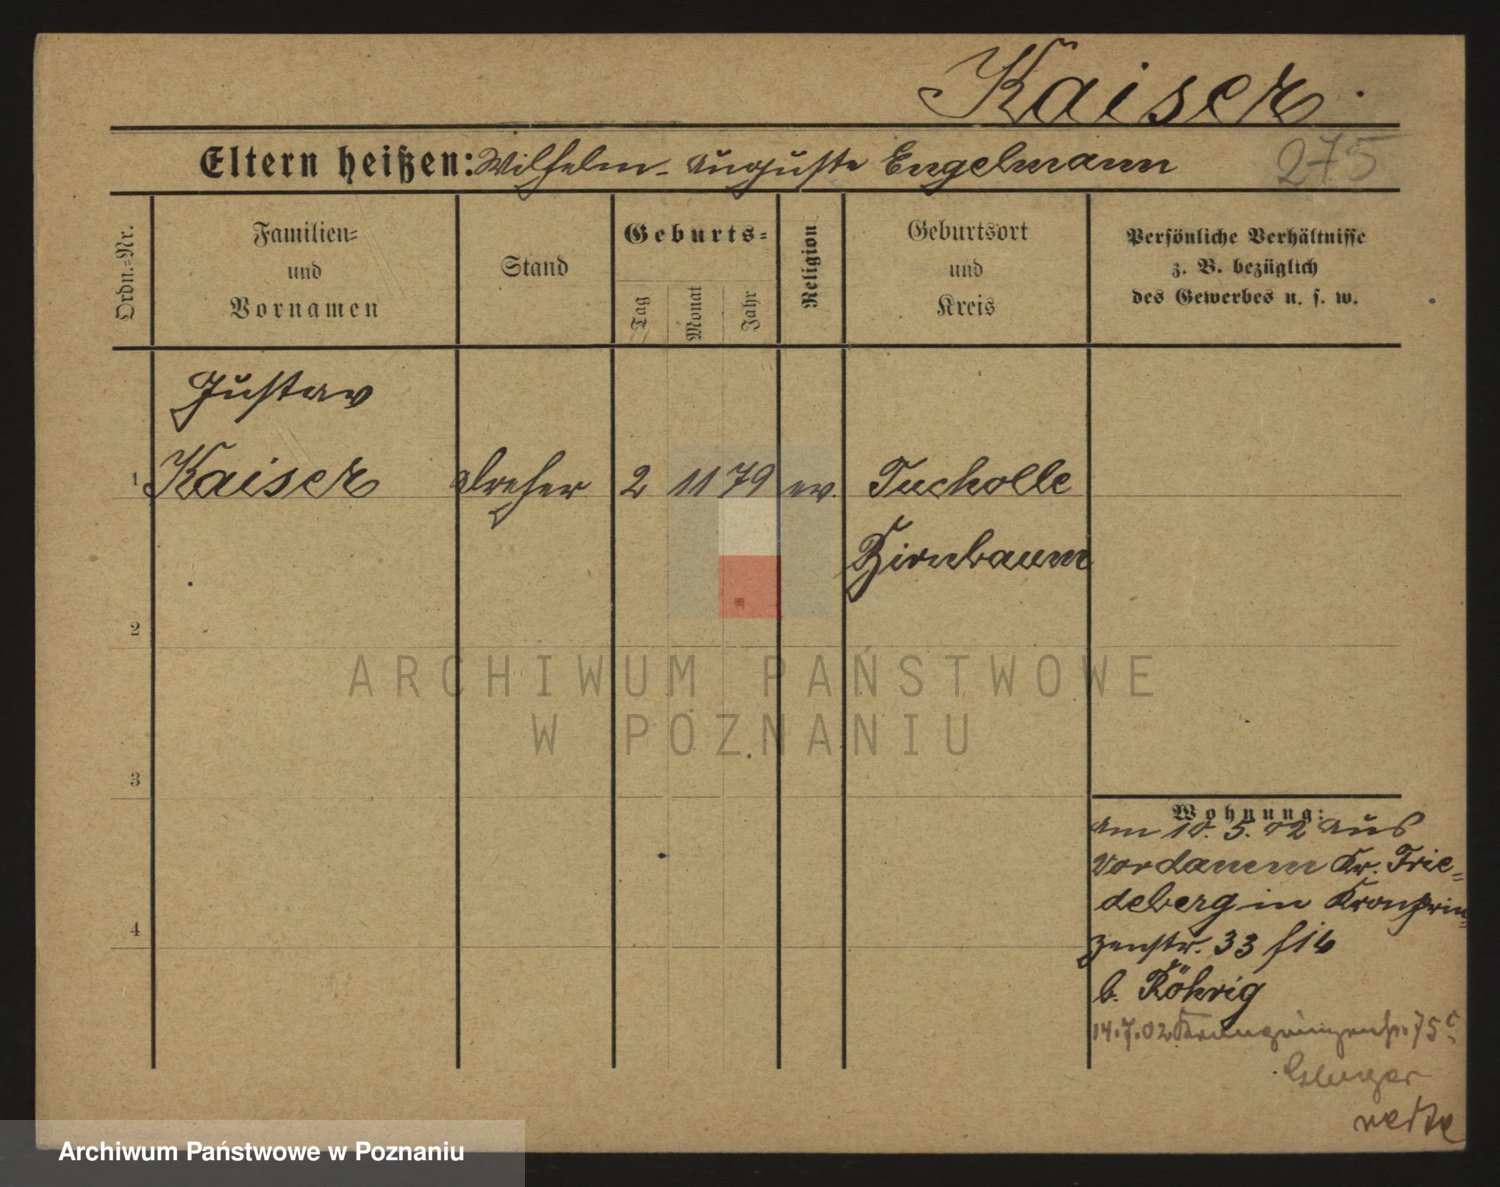 Kaiser.
275
Eltern heißen: Wilhelm - Auguste Engelmann
Ordn.-Nr.
Familien- und Vornamen
Stand
Geburts-
Tag
Monat
Jahr
Religion
Geburtsort und Kreis
Persönliche Verhältnisse
z. B. bezüglich
des Gewerbes u. s. w.
Gustav
1 Kaiser Dreher 2 11 79 ev. Tucholle
Birnbaum
2
3
4
Wohnung:
Am 10. 5. 02 aus
Vordamm Kr. Frie-
deberg in Kronprin-
zenstr. 33
b. Röhrig
14.7.02 Kronprinzenstr. 75
ARCHIWUM PAŃSTWOWE
W POZNANIU
Archiwum Państwowe w Poznaniu